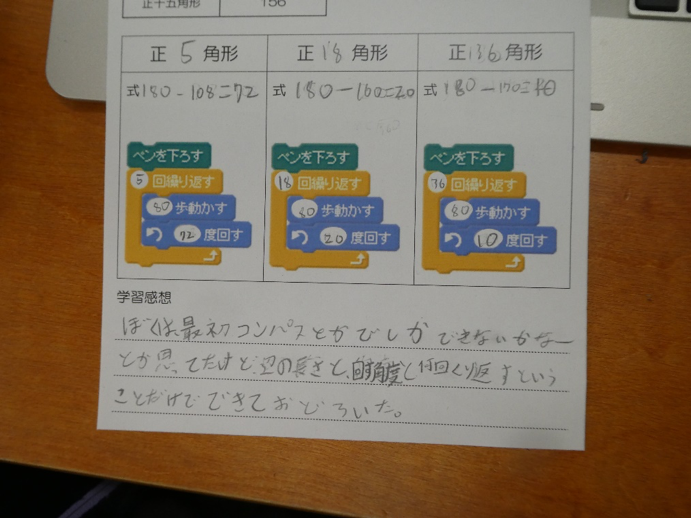 正十五角形 156
正 5 角形 正 18 角形 正 36 角形
式 180-108=72 式 180-160=20 式 180-170=10
ペンを下ろす ペンを下ろす ペンを下ろす
5 回繰り返す 18 回繰り返す 36 回繰り返す
80 歩動かす 80 歩動かす 80 歩動かす
72 度回す 20 度回す 10 度回す
学習感想
ぼくは、最初コンパスとかでしかできないかなー
とか思ってたけど、辺の長さと、回す角度と何回くり返すという
ことだけでできておどろいた。